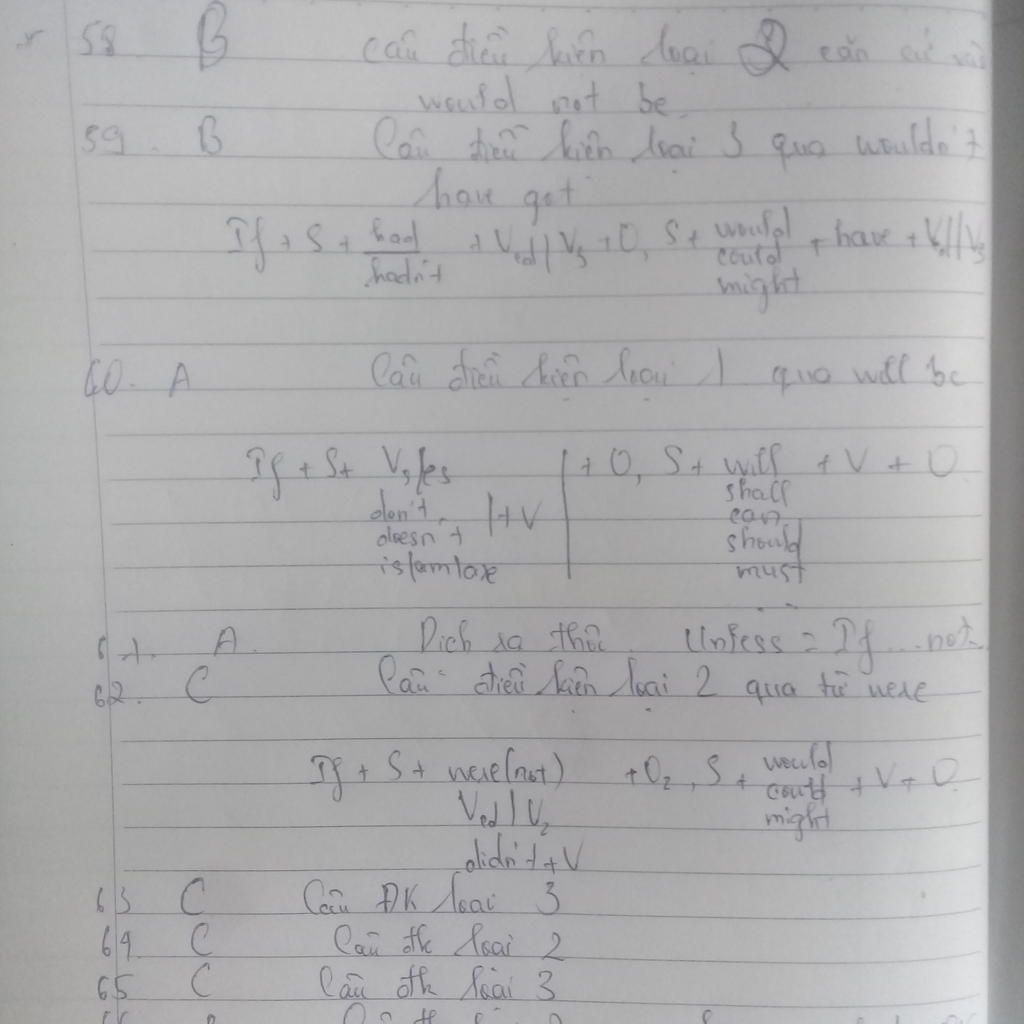 58 B Câu điều kiện loại 2 căn cứ vào
would not be
59. B Câu điều kiện loại 3 qua wouldn't
have got
If + S + had + Ved/V3 + O, S + would + have + Ved/V3
hadn't could
might
60. A Câu điều kiện loại 1 qua will be
If + S + Vs/es + O, S + will + V + O
shall
don't | + V can
doesn't should
is/am/are must
61. A. Dịch ra thôi. Unless = If ... not
62. C Câu điều kiện loại 2 qua từ were
If + S + were (not) + O2, S + would + V + O
could
Ved/V2 might
didn't + V
63 C Câu ĐK loại 3
64. C Câu đk loại 2
65 C Câu đk loại 3